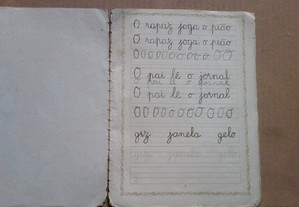 O rapaz joga o pião
O rapaz joga o pião
O O O O O O O O O O
O pai lê o jornal
O pai lê o jornal
O O O O O O O O O O
giz janela gelo
giz janela gelo